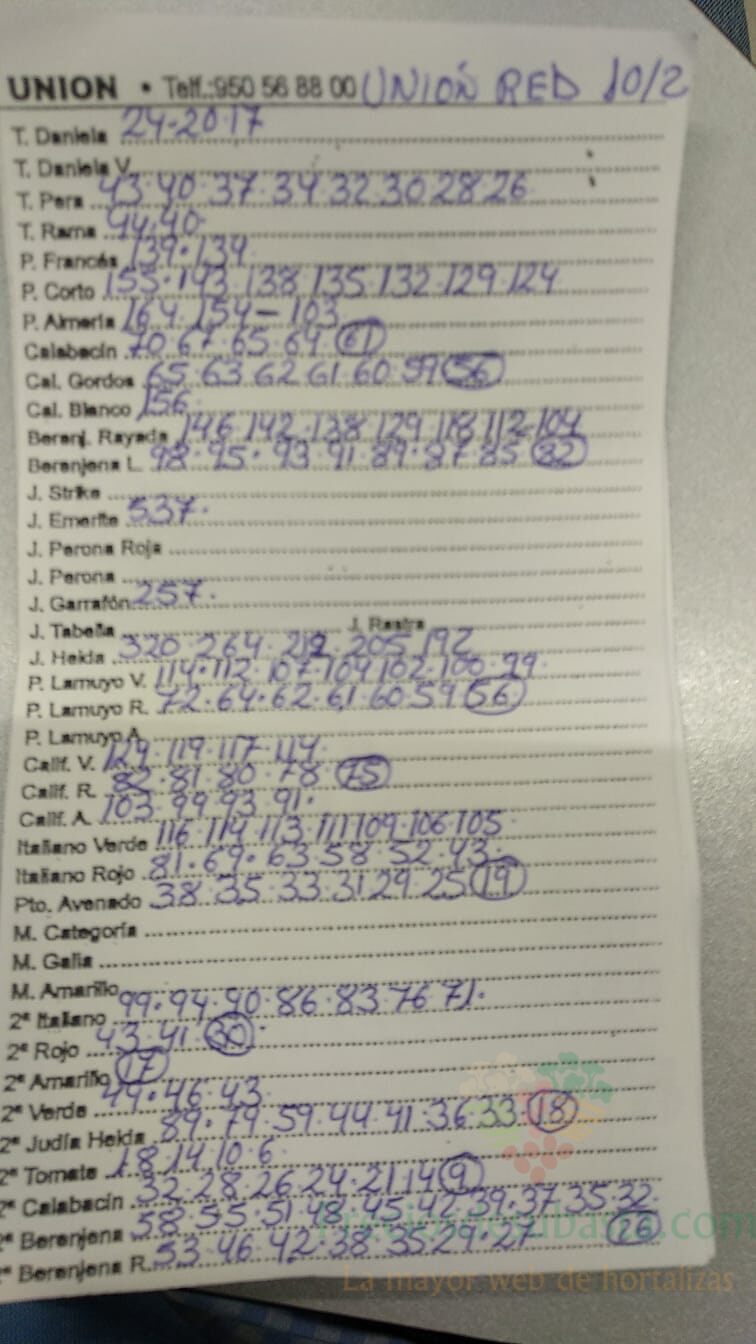 UNION • Telf.:950 56 88 00 UNIÓN RED 10/2
T. Daniela 24-20-17
T. Daniela V.
T. Pera 43·40·37·34·32·30·28·26
T. Rama 44·40·
P. Francés 139·134
P. Corto 155·143·138·135·132·129·124
P. Almería 164·154-103
Calabacín 70·67·65·64·61
Cal. Gordos 65·63·62·61·60·59·56
Cal. Blanco 156·
Berenj. Rayada 146·142·138·129·118·112·104
Berenjena L. 98·95·93·91·89·87·85·82
J. Strike
J. Emerite 537·
J. Perona Roja
J. Perona
J. Garrafón 257·
J. Tabella J. Rastra
J. Helda 320·264·212·205·192
P. Lamuyo V. 114·112·107·104·102·100·99·
P. Lamuyo R. 72·64·62·61·60·59·56
P. Lamuyo A.
Calif. V. 129·119·117·114·
Calif. R. 82·81·80·78·75
Calif. A. 103·99·93·91·
Italiano Verde 116·114·113·111·109·106·105
Italiano Rojo 81·69·63·58·52·43·
Pto. Avenado 38·35·33·31·29·25·19
M. Categoría
M. Galia
M. Amarillo
2ª Italiano 99·94·90·86·83·76·71·
2ª Rojo 43·41·30·
2ª Amarillo 17
2ª Verde 49·46·43·
2ª Judía Helda 89·79·59·44·41·36·33·18
2ª Tomate 18·14·10·6·
2ª Calabacín 32·28·26·24·21·14·9
2ª Berenjena 58·55·51·48·45·42·39·37·35·32·
2ª Berenjena R. 53·46·42·38·35·29·27
Preciosdesubasta.com
La mayor web de hortalizas